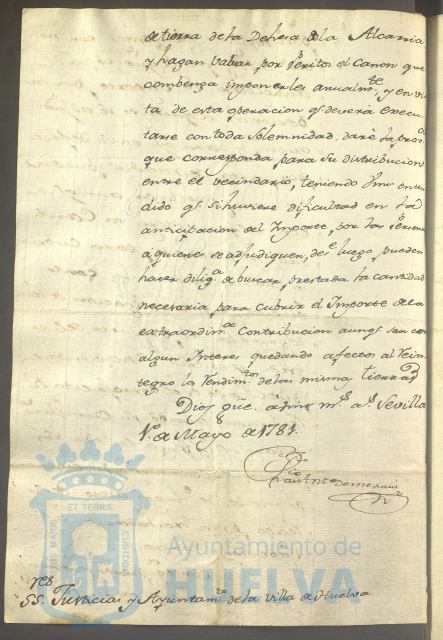 de tierra de la Dehesa de la Alcarria
y hagan valuar por Peritos el canon que
combenga imponerles anualm.te, y en vis
ta de esta operacion q.e deverá execu
tarse con toda Solemnidad, daré la prov.a
que corresponda para su distribucion
entre el vecindario, teniendo Vms enten
dido q.e si huviere dificultad en la
anticipacion del Importe, por las Personas
a quienes se adjudiquen, des.e luego pueden
hacer dilig.a de buscar prestada la cantidad
necesaria para cubrir el Importe de la
extraordin.a Contribucion aunq.e sea con
algun Interes quedando afectos al Rein
tegro los Rendim.tos de las mismas tierras
Dios gūe. á Vms m.s a.s Sevilla
1.o de Mayo de 1781.
Fran.co Ant.o Domezain
res
SS. Justicias y Ayuntam.to de la Villa de Huelva
ET TERRAE
CUSTODIA
Ayuntamiento de
HUELVA